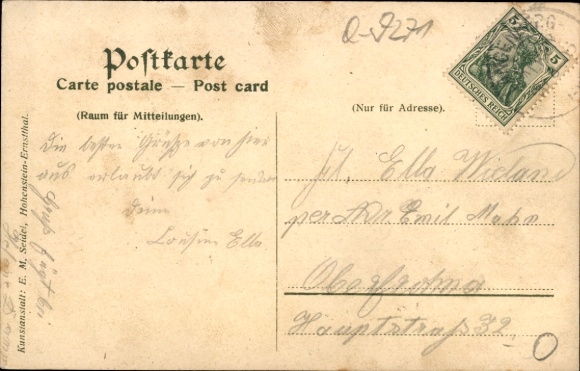 Q-9271
Postkarte
Carte postale — Post card
(Raum für Mitteilungen).
(Nur für Adresse).
5 5
DEUTSCHES REICH
Die besten Grüße von hier
aus erlaubt sich zu senden
Deine
Cousine Ella
Gruß fügt bei
Frl. Ella Wieland
per Adr Emil Mehn
Oberfrohna
Hauptstraß 32
Kunstanstalt: E. M. Seidel, Hohenstein-Ernstthal.